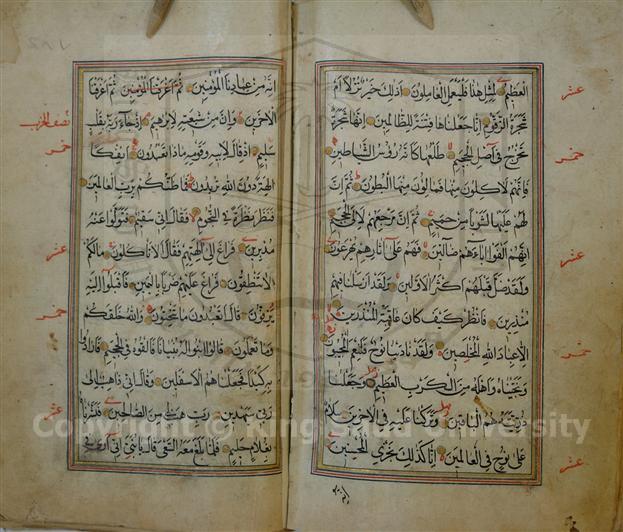 العظيم لمثل هذا فليعمل العاملون اذلك خير نزلا ام
شجرة الزقوم انا جعلناها فتنة للظالمين انها شجرة
تخرج في اصل الجحيم طلعها كانه رؤس الشياطين
فانهم لاكلون منها فمالؤن منها البطون ثم ان
لهم عليها لشوبا من حميم ثم ان مرجعهم لالى الجحيم
انهم الفوا اباءهم ضالين فهم على اثارهم يهرعون
ولقد ضل قبلهم اكثر الاولين ولقد ارسلنا فيهم
منذرين فانظر كيف كان عاقبة المنذرين
الا عباد الله المخلصين ولقد نادينا نوح فلنعم المجيبون
ونجيناه واهله من الكرب العظيم وجعلنا
ذريته هم الباقين وتركنا عليه في الاخرين سلام
على نوح في العالمين انا كذلك نجزي المحسنين
عشر
خمس
عشر
خمس
عشر
انه من عبادنا المؤمنين ثم اغرقنا
الاخرين وان من شيعته لابرهيم اذ جاء ربه بقلب
سليم اذ قال لابيه وقومه ماذا تعبدون ائفكا
الهة دون الله تريدون فما ظنكم برب العالمين
فنظر نظرة في النجوم فقال اني سقيم فتولوا عنه
مدبرين فراغ الى الهتهم فقال الا تاكلون مالكم
لا تنطقون فراغ عليهم ضربا باليمين فاقبلوا اليه
يزفون قال اتعبدون ما تنحتون والله خلقكم
وما تعملون قالوا ابنوا له بنيانا فالقوه في الجحيم فارادوا
به كيدا فجعلناهم الاسفلين وقال اني ذاهب الى
ربي سيهدين رب هب لي من الصالحين فبشرناه
بغلام حليم فلما بلغ معه السعي قال يا بني اني ارى في
نصف الحزب
خمس
عشر
خمس
عشر
Copyright © King Saud University